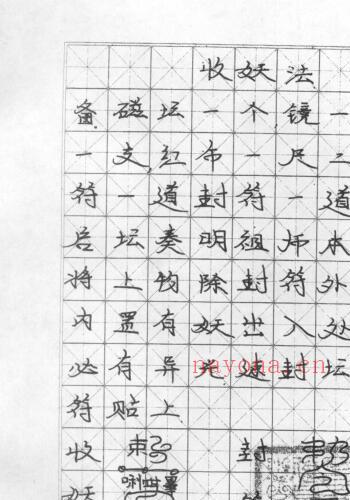 收妖法
备磁坛一个,镜一
一支,红布一尺二
符一道封符一道
启坛奏明祖师本
将上物除封符外
内置有妖出入处
必有异光速封坛
符贴上
收 封
妖